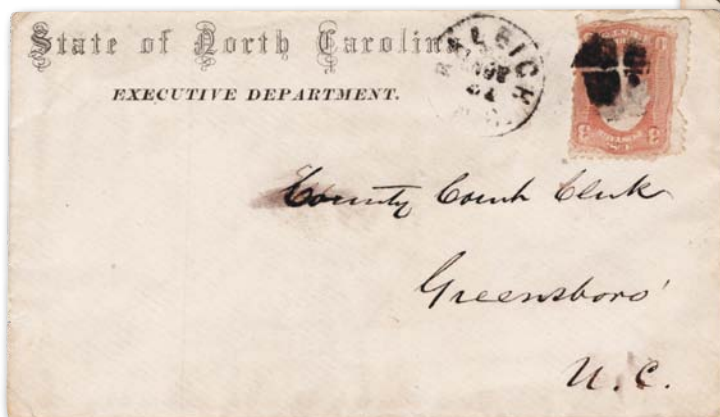 State of North Carolina
EXECUTIVE DEPARTMENT.
RALEIGH
County Court Clerk
Greensboro'
N.C.